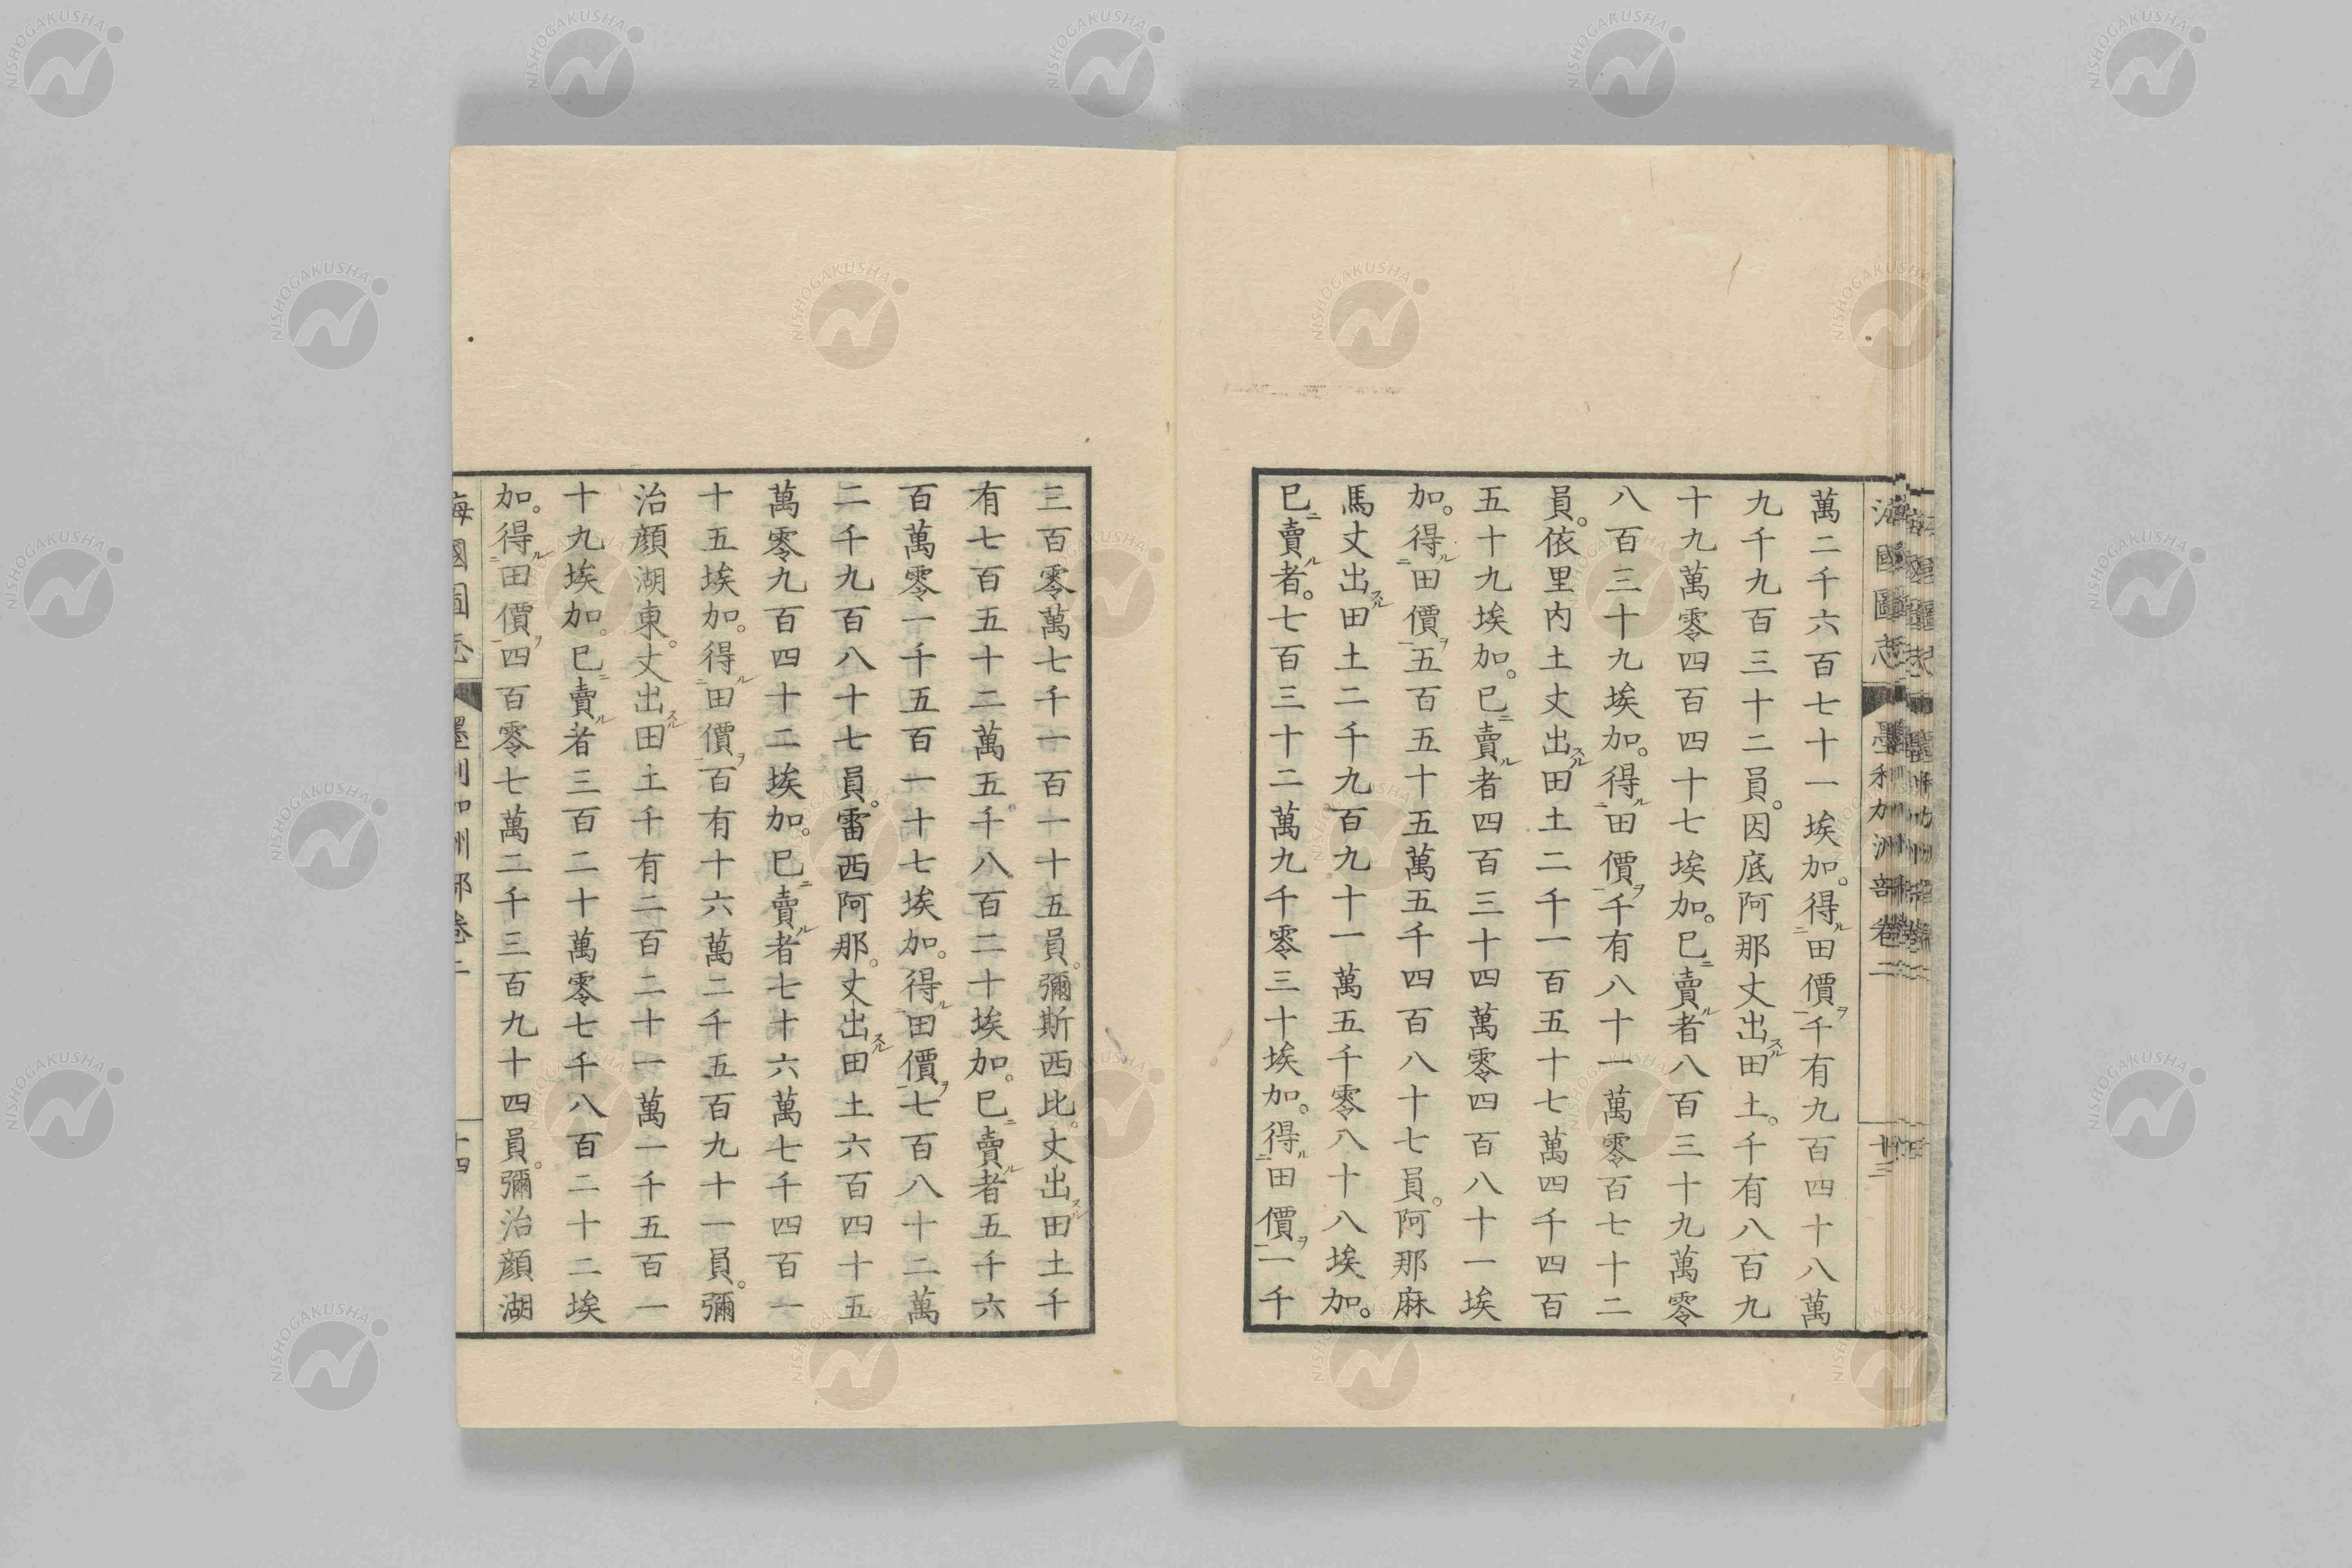 海國圖志 墨利加洲部卷二 十三
萬二千六百七十一埃加。得ル二田價ヲ一千有九百四十八萬
九千九百三十二員。因底阿那丈出スル田土。千有八百九
十九萬零四百四十七埃加。已ニ賣ル者八百三十九萬零
八百三十九埃加。得ル二田價ヲ一千有八十一萬零百七十二
員。依里内土丈出スル田土二千一百五十七萬四千四百
五十九埃加。已ニ賣ル者四百三十四萬零四百八十一埃
加。得ル二田價ヲ一五百五十五萬五千四百八十七員。阿那麻
馬丈出スル田土二千九百九十一萬五千零八十八埃加。
已ニ賣ル者。七百三十二萬九千零三十埃加。得ル二田價ヲ一一千
三百零萬七千一百一十五員。彌斯西比。丈出スル田土千
有七百五十二萬五千八百二十埃加。已ニ賣ル者五千六
百萬零一千五百一十七埃加。得ル二田價ヲ一七百八十二萬
二千九百八十七員。雷西阿那。丈出スル田土六百四十五
萬零九百四十二埃加。已ニ賣ル者七十六萬七千四百一
十五埃加。得ル二田價ヲ一百有十六萬二千五百九十一員。彌
治顔湖東。丈出スル田土千有二百二十一萬一千五百一
十九埃加。已ニ賣ル者三百二十萬零七千八百二十二埃
加。得ル二田價ヲ一四百零七萬二千三百九十四員。彌治顔湖
海國圖志 墨利加洲部卷二 十四